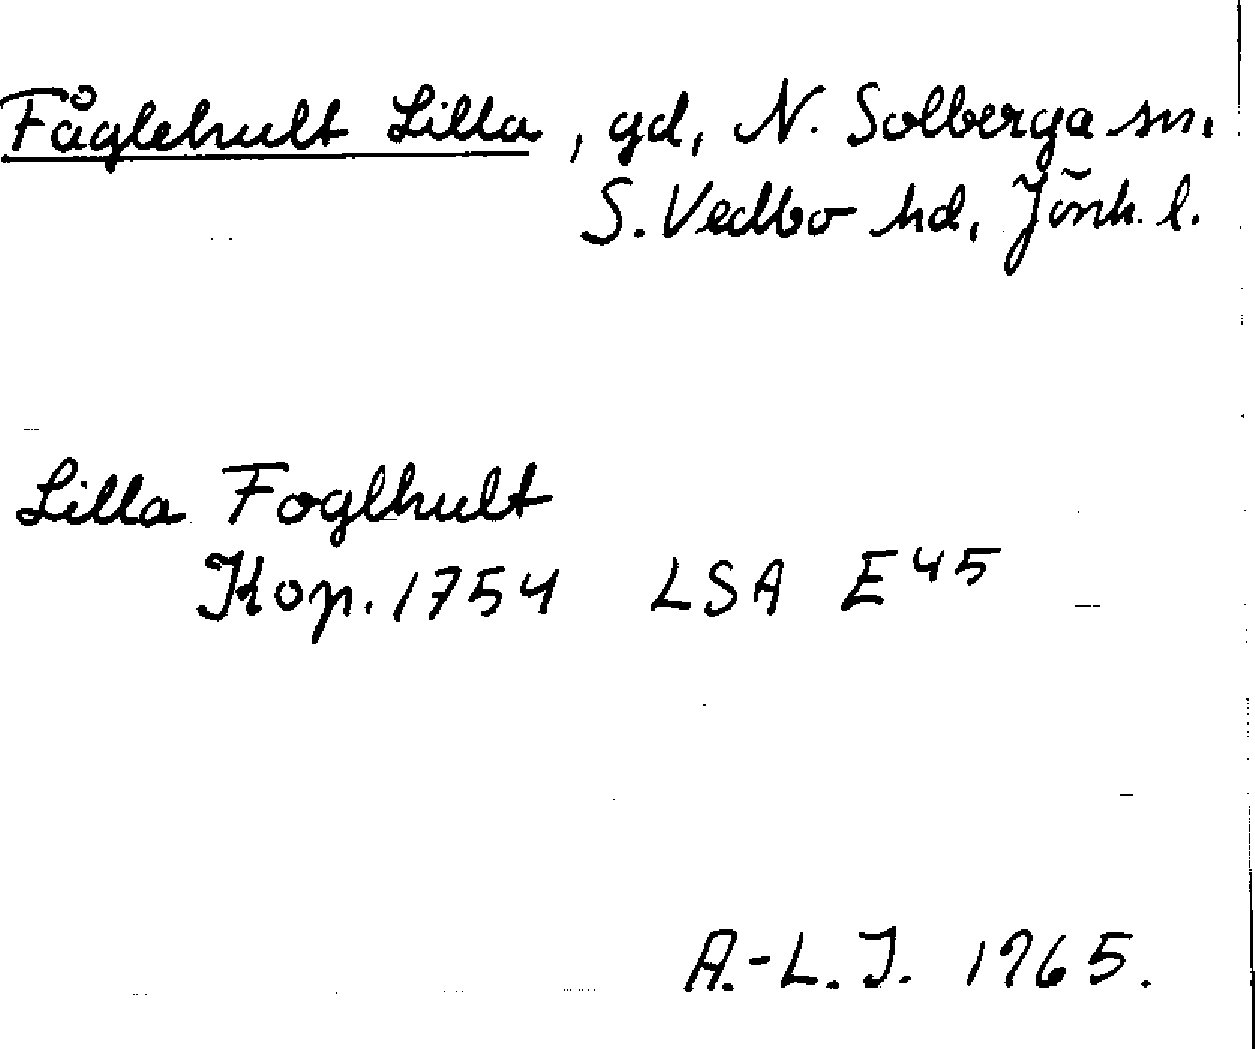 Fåglehult Lilla, gd, N. Solberga sn.
S. Vedbo hd, Jönk. l.
Lilla Foglhult
Kop. 1754 LSA E45
A.-L.J. 1965.